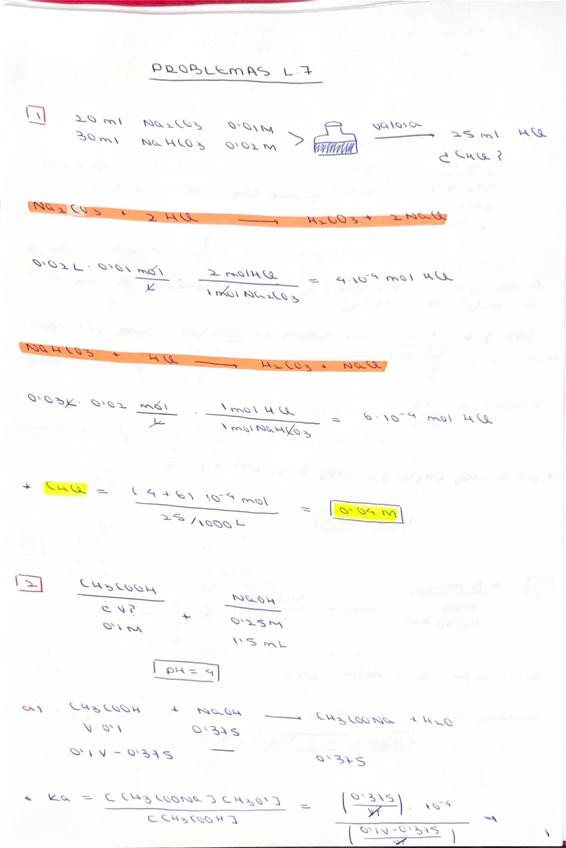 PROBLEMAS L.7
1
20 ml Na2CO3 0'01M
30ml NaHCO3 0'02 M
> valora → 25 ml HCl
¿CHCl?
Na2CO3 + 2HCl → H2CO3 + 2NaCl
0'02L · 0'01 mol/L · 2 mol HCl/1 mol Na2CO3 = 4·10⁻⁴ mol HCl
NaHCO3 + HCl → H2CO3 + NaCl
0'03L · 0'02 mol/L · 1 mol HCl/1 mol NaHCO3 = 6·10⁻⁴ mol HCl
* CHCl = (4+6)·10⁻⁴ mol/25/1000L = 0'04 M
2
CH3COOH + NaOH
¿V? 0'25M
0'1M 1'5 mL
pH = 4
a) CH3COOH + NaOH → CH3COONa + H2O
V 0'1 0'375
0'1V - 0'375 — 0'375
* Ka = [CH3COONa][H3O⁺]/[CH3COOH] = (0'375/VT) · 10⁻⁴/(0'1V-0'375/VT) →
1